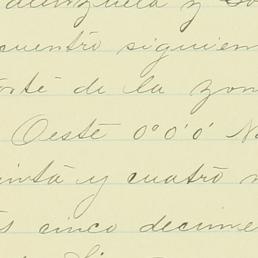 y
cuentro siguien
orte de la zon
Oeste 0°0'0' N
einta y cuatro
s cinco decime